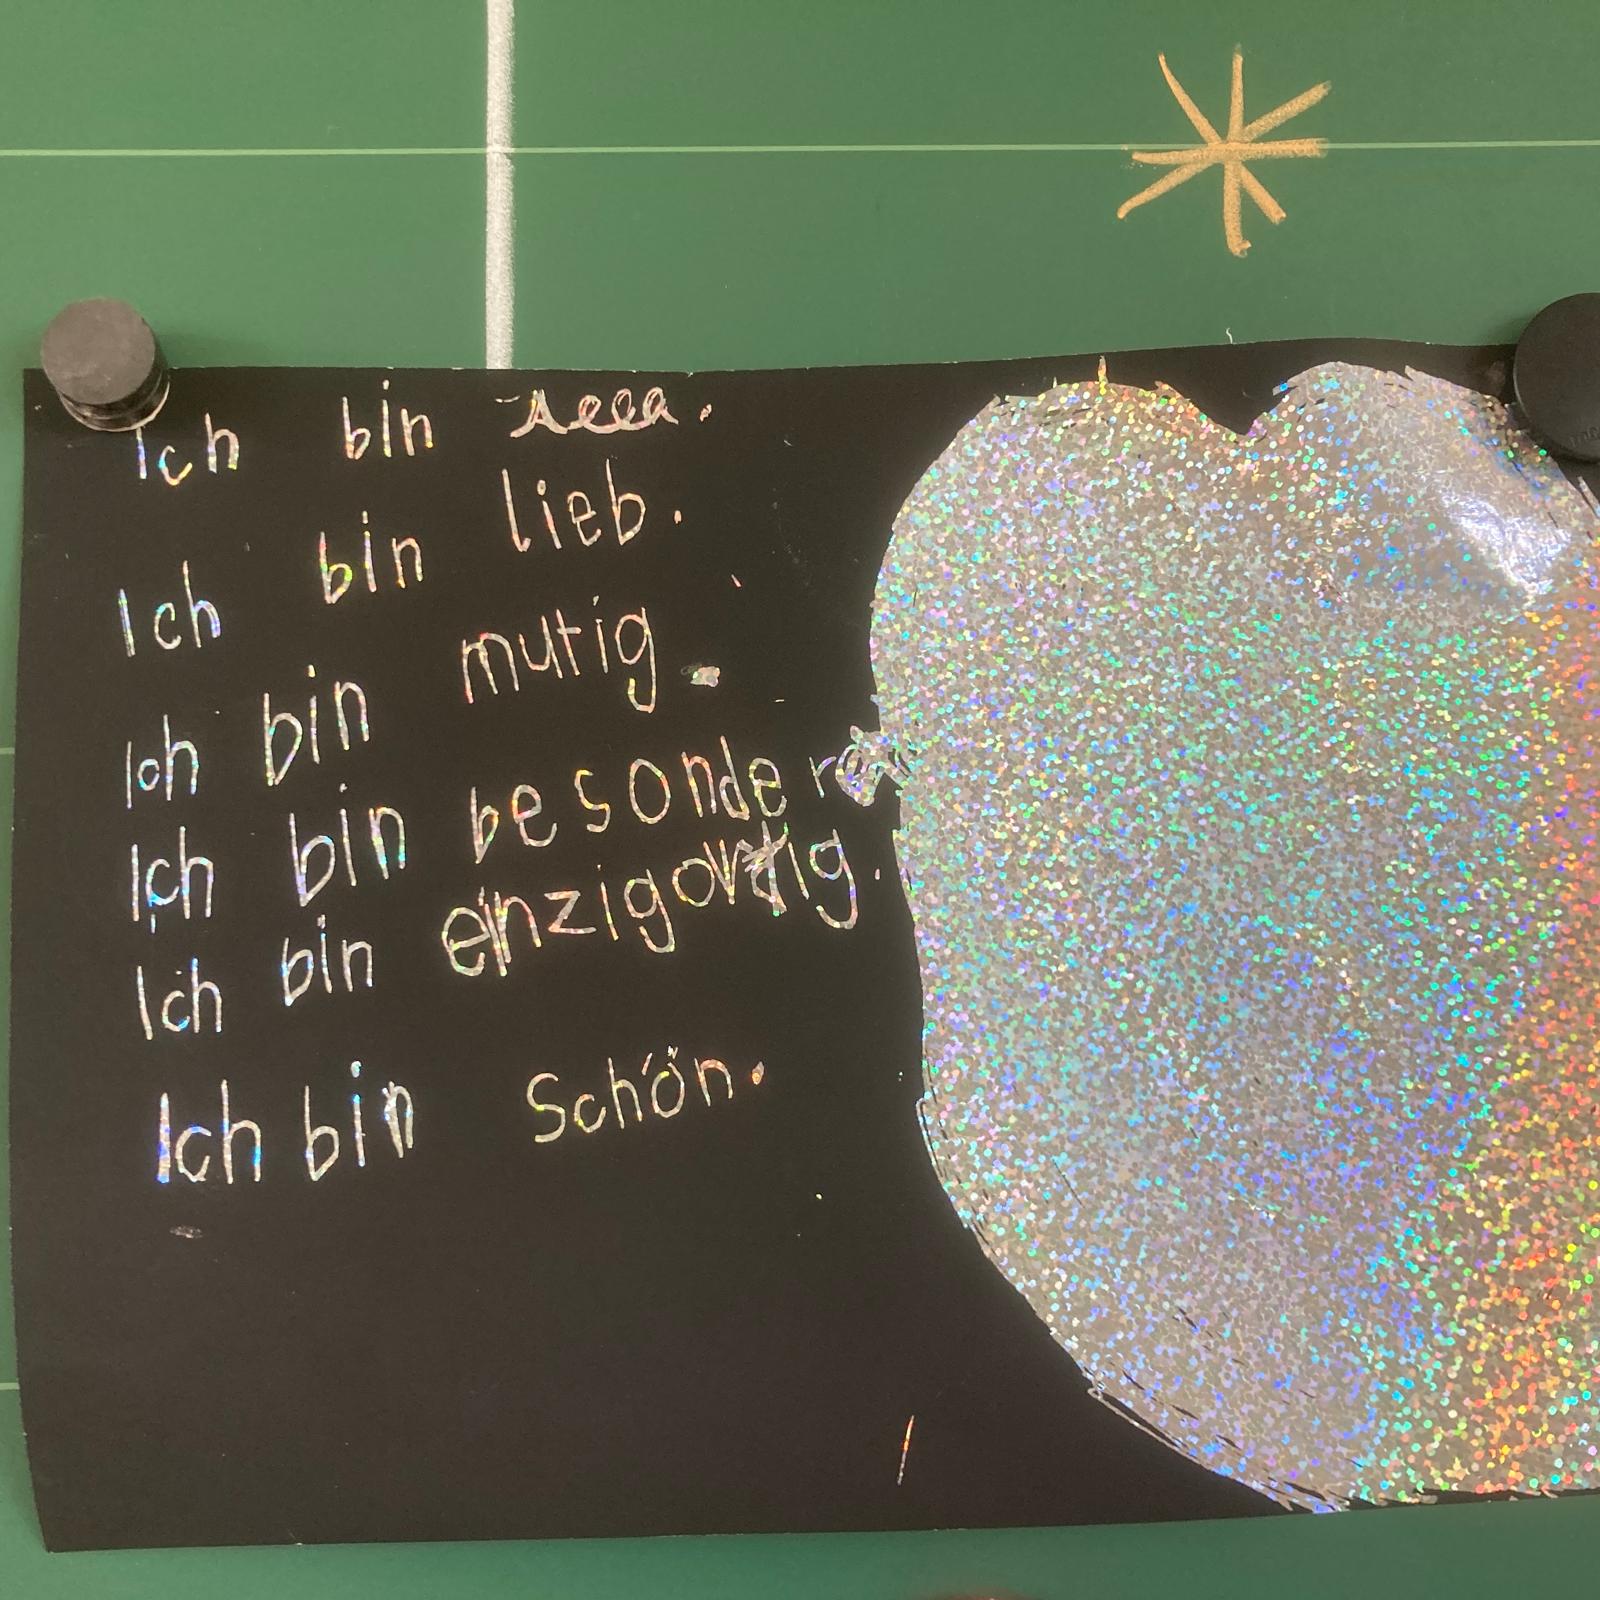 Ich bin
Ich bin lieb.
Ich bin mutig.
Ich bin besonder
Ich bin einzigartig.
Ich bin Schön.